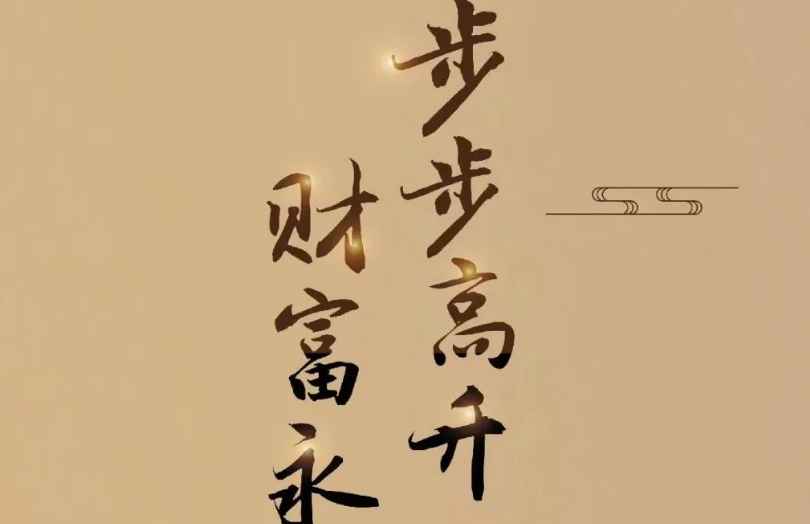 步步高升
财富永